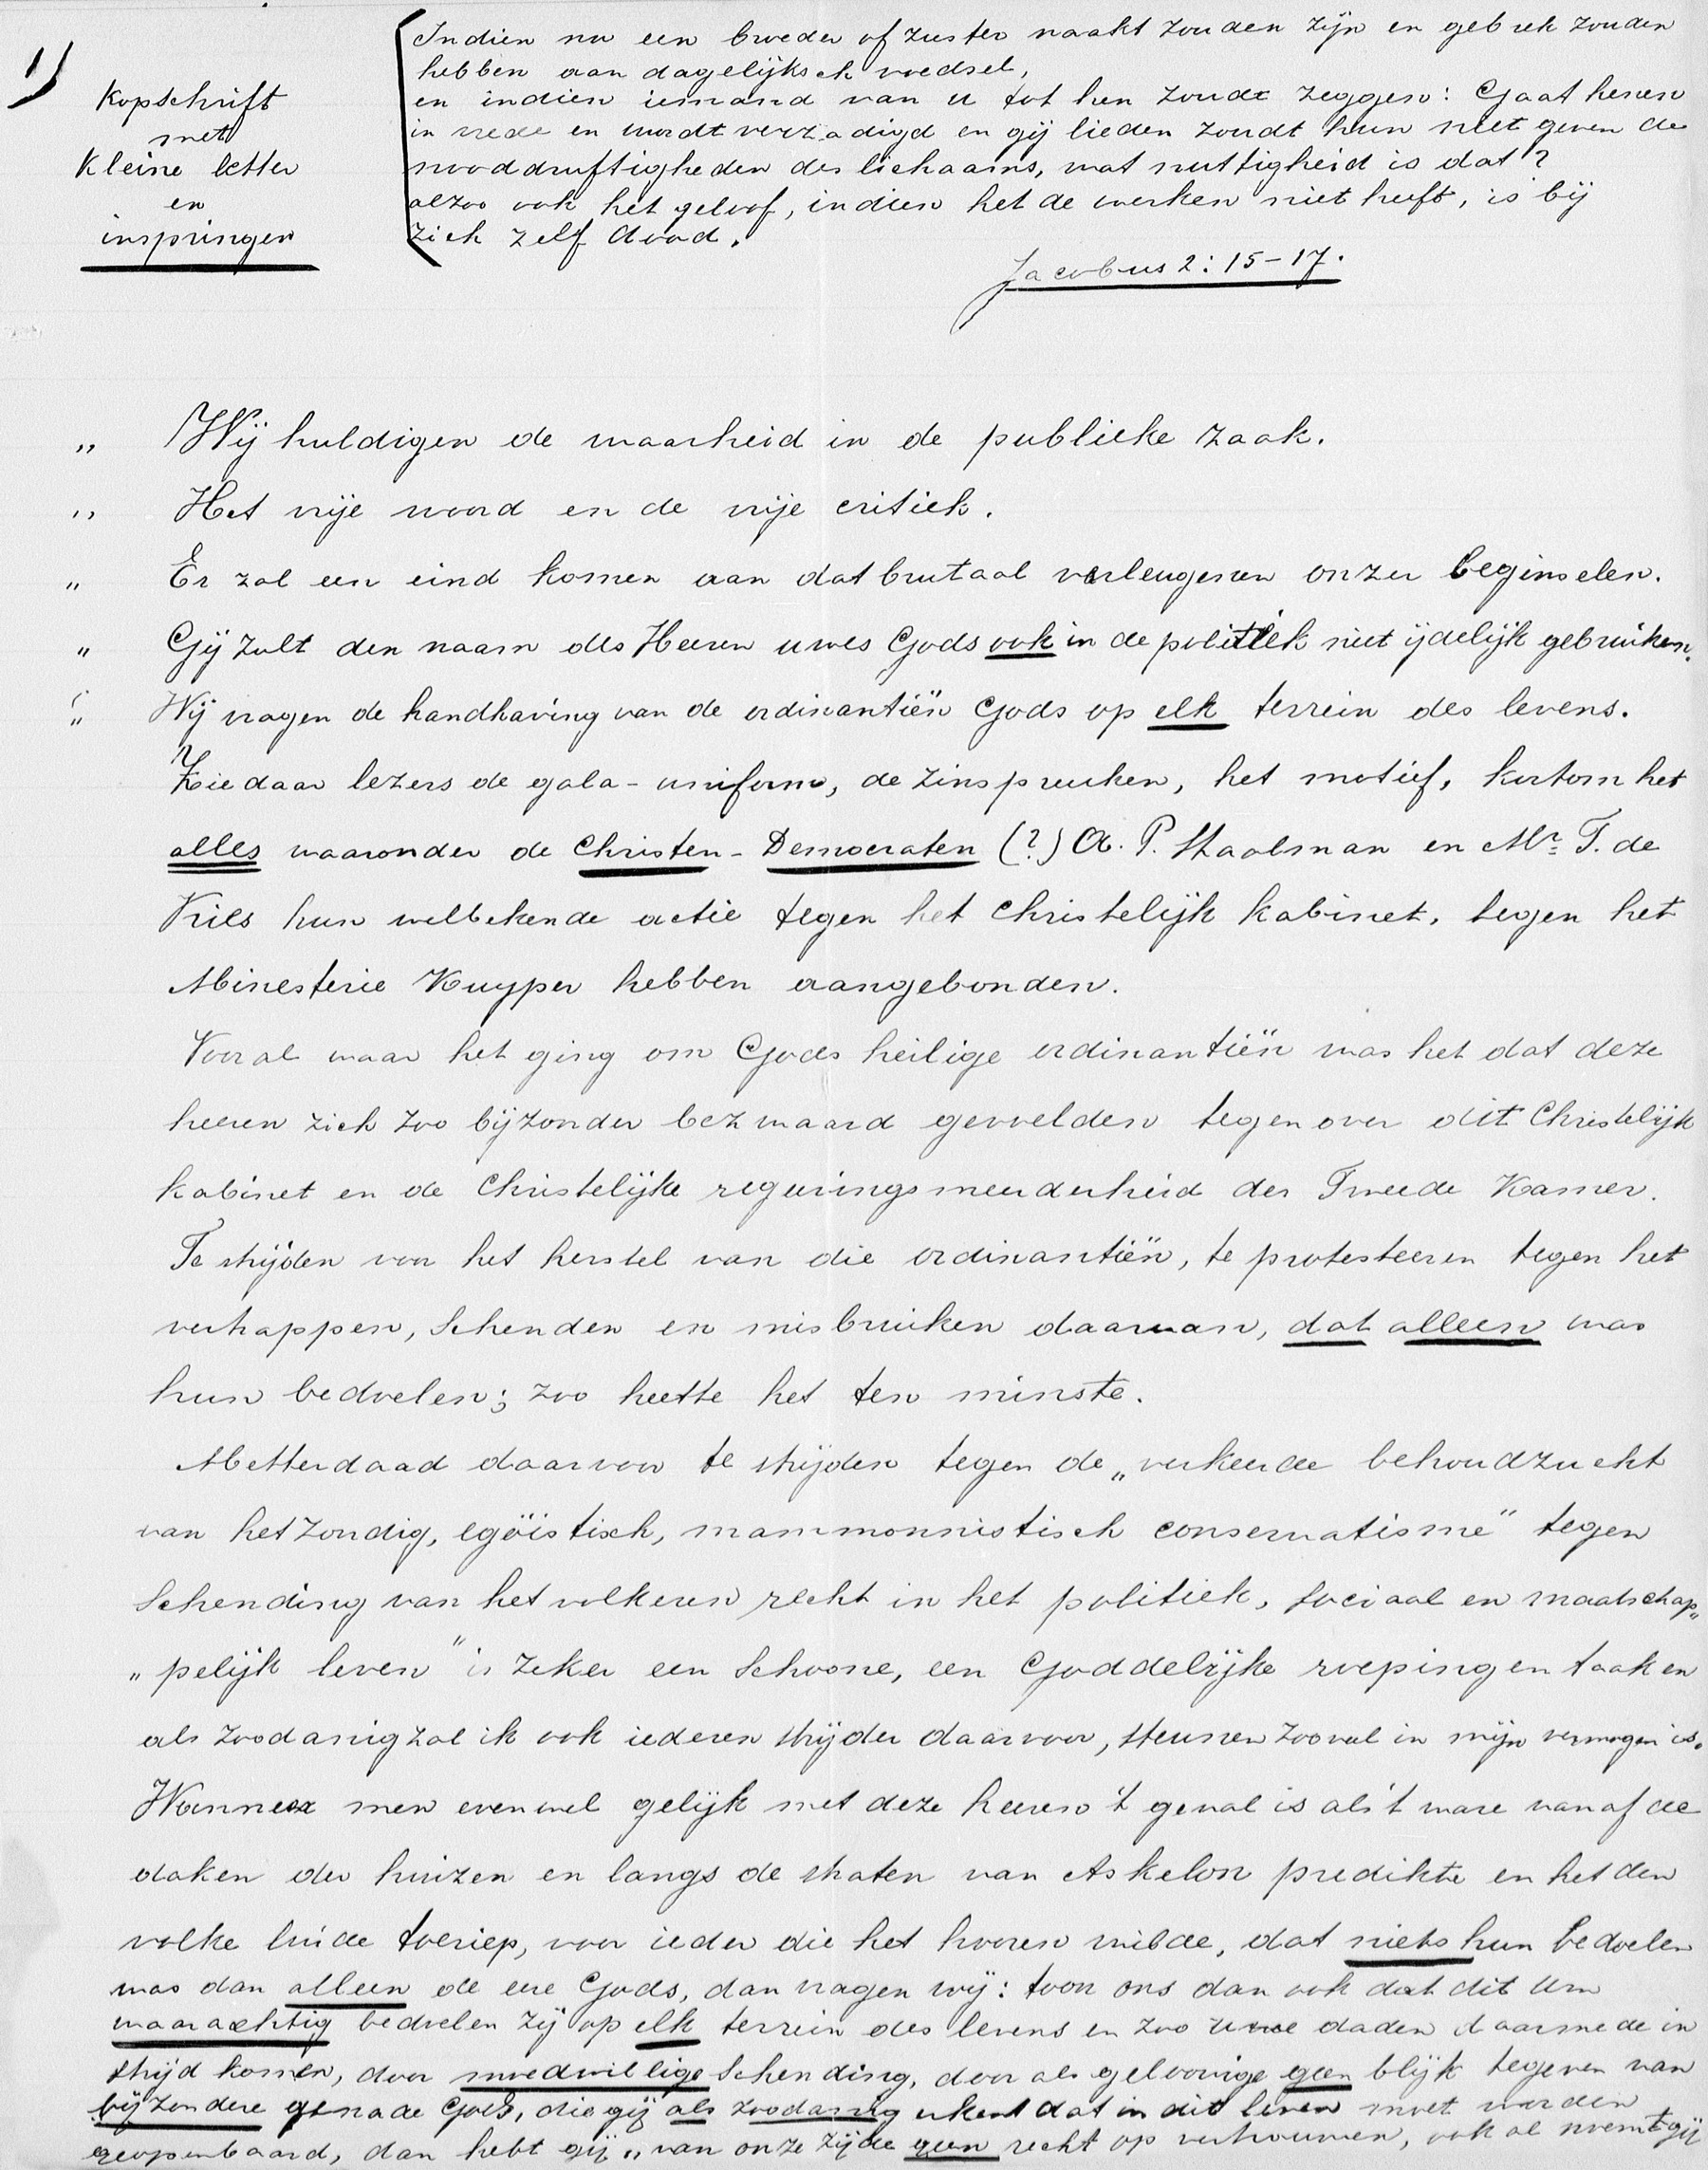 1)
Kopschrift
met
kleine letter
en
inspringen
Indien nu een broeder of zuster naakt zouden zijn en gebrek zouden
hebben aan dagelijksch voedsel,
en indien iemand van u tot hen zoude zeggen: Gaat henen
in vrede en wordt verzadigd en gij lieden zoudt hun niet geven de
nooddruftigheden des lichaams, wat nuttigheid is dat?
alzoo ook het geloof, indien het de werken niet heeft, is bij
zich zelf dood.
Jacobus 2: 15-17.
„ Wij huldigen de waarheid in de publieke zaak.
„ Het vrije woord en de vrije critiek.
„ Er zal een eind komen aan dat brutaal verleugenen onzer beginselen.
„ Gij zult den naam des Heeren uwes Gods ook in de politiek niet ijdelijk gebruiken.
„ Wij vragen de handhaving van de ordinantiën Gods op elk terrein des levens.
Zie daar lezers de gala-uniform, de zinspreuken, het motief, kortom het
alles waaronder de Christen-Democraten (?) A. P. Staalman en Mr. T. de
Vries hun welbekende actie tegen het Christelijk kabinet, tegen het
Ministerie Kuyper hebben aangebonden.
Vooral waar het ging om Gods heilige ordinantiën was het dat deze
heeren zich zoo bijzonder bezwaard gevoelden tegenover dit Christelijk
kabinet en de Christelijke regeeringsmeerderheid der Tweede Kamer.
Te strijden voor het herstel van die ordinantiën, te protesteeren tegen het
vertrappen, schenden en misbruiken daarvan, dat alleen was
hun bedoelen; zoo heette het ten minste.
Metterdaad daarvoor te strijden tegen de „verkeerde behoudzucht
van het zondig, egoïstisch, mammonnistisch conservatisme" tegen
schending van het volkeren recht in het politiek, sociaal en maatschap„
„pelijk leven" is zeker een schoone, een Goddelijke roeping en taak en
als zoodanig zal ik ook iederen strijder daarvoor, steunen zooveel in mijn vermogen is.
Wanneer men evenwel gelijk met deze heeren 't geval is als 't ware van af de
daken der huizen en langs de straten van Askelon predikte en het den
volke luide toeriep, voor ieder die het hooren wilde, dat niets hun bedoelen
was dan alleen de eere Gods, dan vragen wij: toon ons dan ook dat dit Uw
waarachtig bedoelen zij op elk terrein des levens en zoo Uwe daden daarmede in
strijd komen, door moedwillige schending, door als geloovige geen blijk te geven van
bijzondere genade Gods, die gij als zoodanig erkent dat in dit leven moet worden
geopenbaard, dan hebt gij „van onze zijde geen recht op vertrouwen, ook al noemt gij